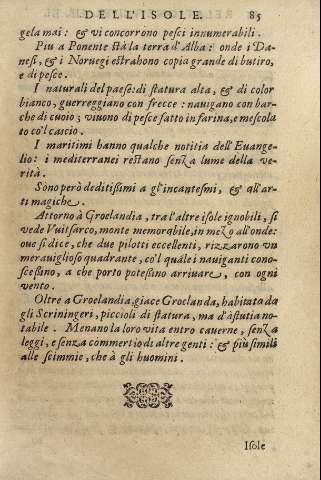 DELL'ISOLE. 85
gela mai: & vi concorrono pesci innumerabili.
Piu a Ponente stà la terra d'Alba: onde i Da-
nesi, & i Noruegi estrahono copia grande di butiro,
e di pesce.
I naturali del paese: di statura alta, & di color
bianco, guerreggiano con frecce: nauigano con bar-
che di cuoio; viuono di pesce fatto in farina, e mescola
to co'l cascio.
I maritimi hanno qualche notitia dell'Euange-
lio: i mediterranei restano senza lume della ve-
rità.
Sono però deditissimi a gl'incantesmi, & all'ar-
ti magiche.
Attorno à Groelandia, tra l'altre isole ignobili, si
vede Vuitsarco, monte memorabile, in mezo all'onde:
oue si dice, che due pilotti eccellenti, rizzarono vn
merauiglioso quadrante, co'l quale i nauiganti cono-
scessino, a che porto potessino arriuare, con ogni
vento.
Oltre a Groelandia, giace Groclanda, habitata da
gli Scriningeri, piccioli di statura, ma d'astutia no-
tabile. Menano la loro vita entro cauerne, senza
leggi, e senza commertio di altre genti: & più simili
alle scimmie, che à gli huomini.
Isole